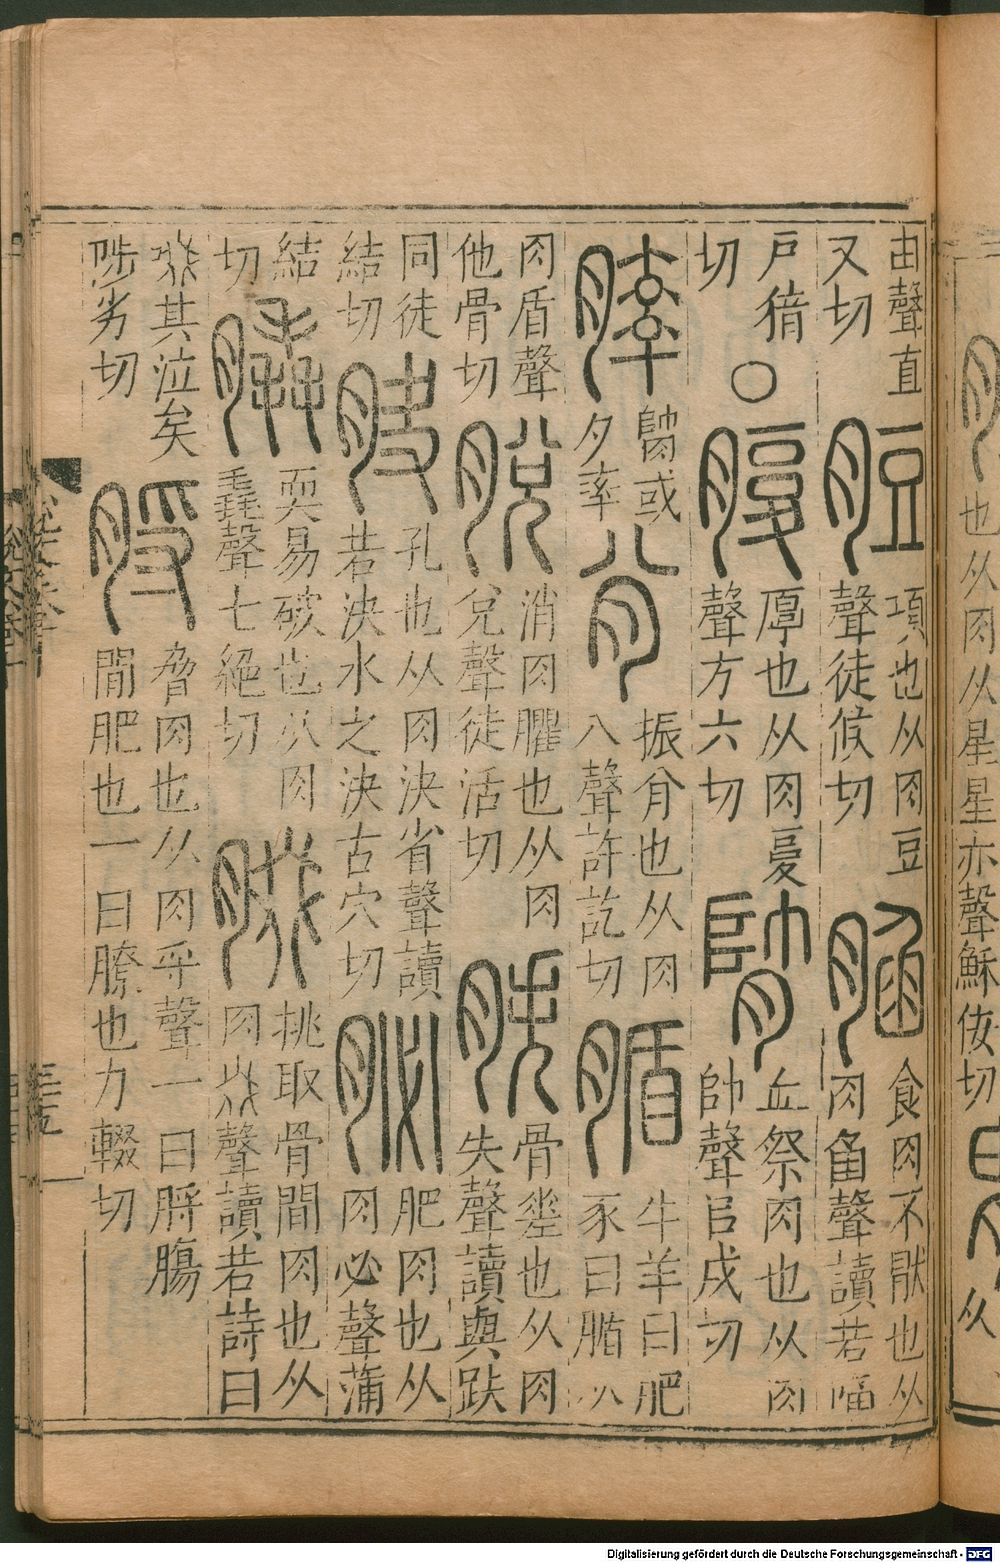 也从肉从星星亦聲穌佞切
由聲直又切 脰 項也从肉豆聲徒候切 䐄 食肉不猒也从肉臽聲讀若陷
戶猪切 ○ 腹 厚也从肉复聲方六切 𦞦 血祭肉也从肉帥聲呂戌切
膟 𦞦或从率 𦘺 振𦘺也从肉八聲許訖切 腯 牛羊曰肥豕曰腯从
肉盾聲他骨切 脫 消肉臞也从肉兌聲徒活切 胅 骨差也从肉失聲讀與跌
同徒結切 𦙾 孔也从肉決省聲讀若決水之決古穴切 䏟 肥肉也从肉必聲蒲
結切 膬 耎易破也从肉毳聲七絕切 腏 挑取骨間肉也从肉叕聲讀若詩曰
叕其泣矣陟劣切 脟 脅肉也从肉寽聲一曰脟腸間肥也一曰膫也力輟切
Digitalisierung gefördert durch die Deutsche Forschungsgemeinschaft - DFG